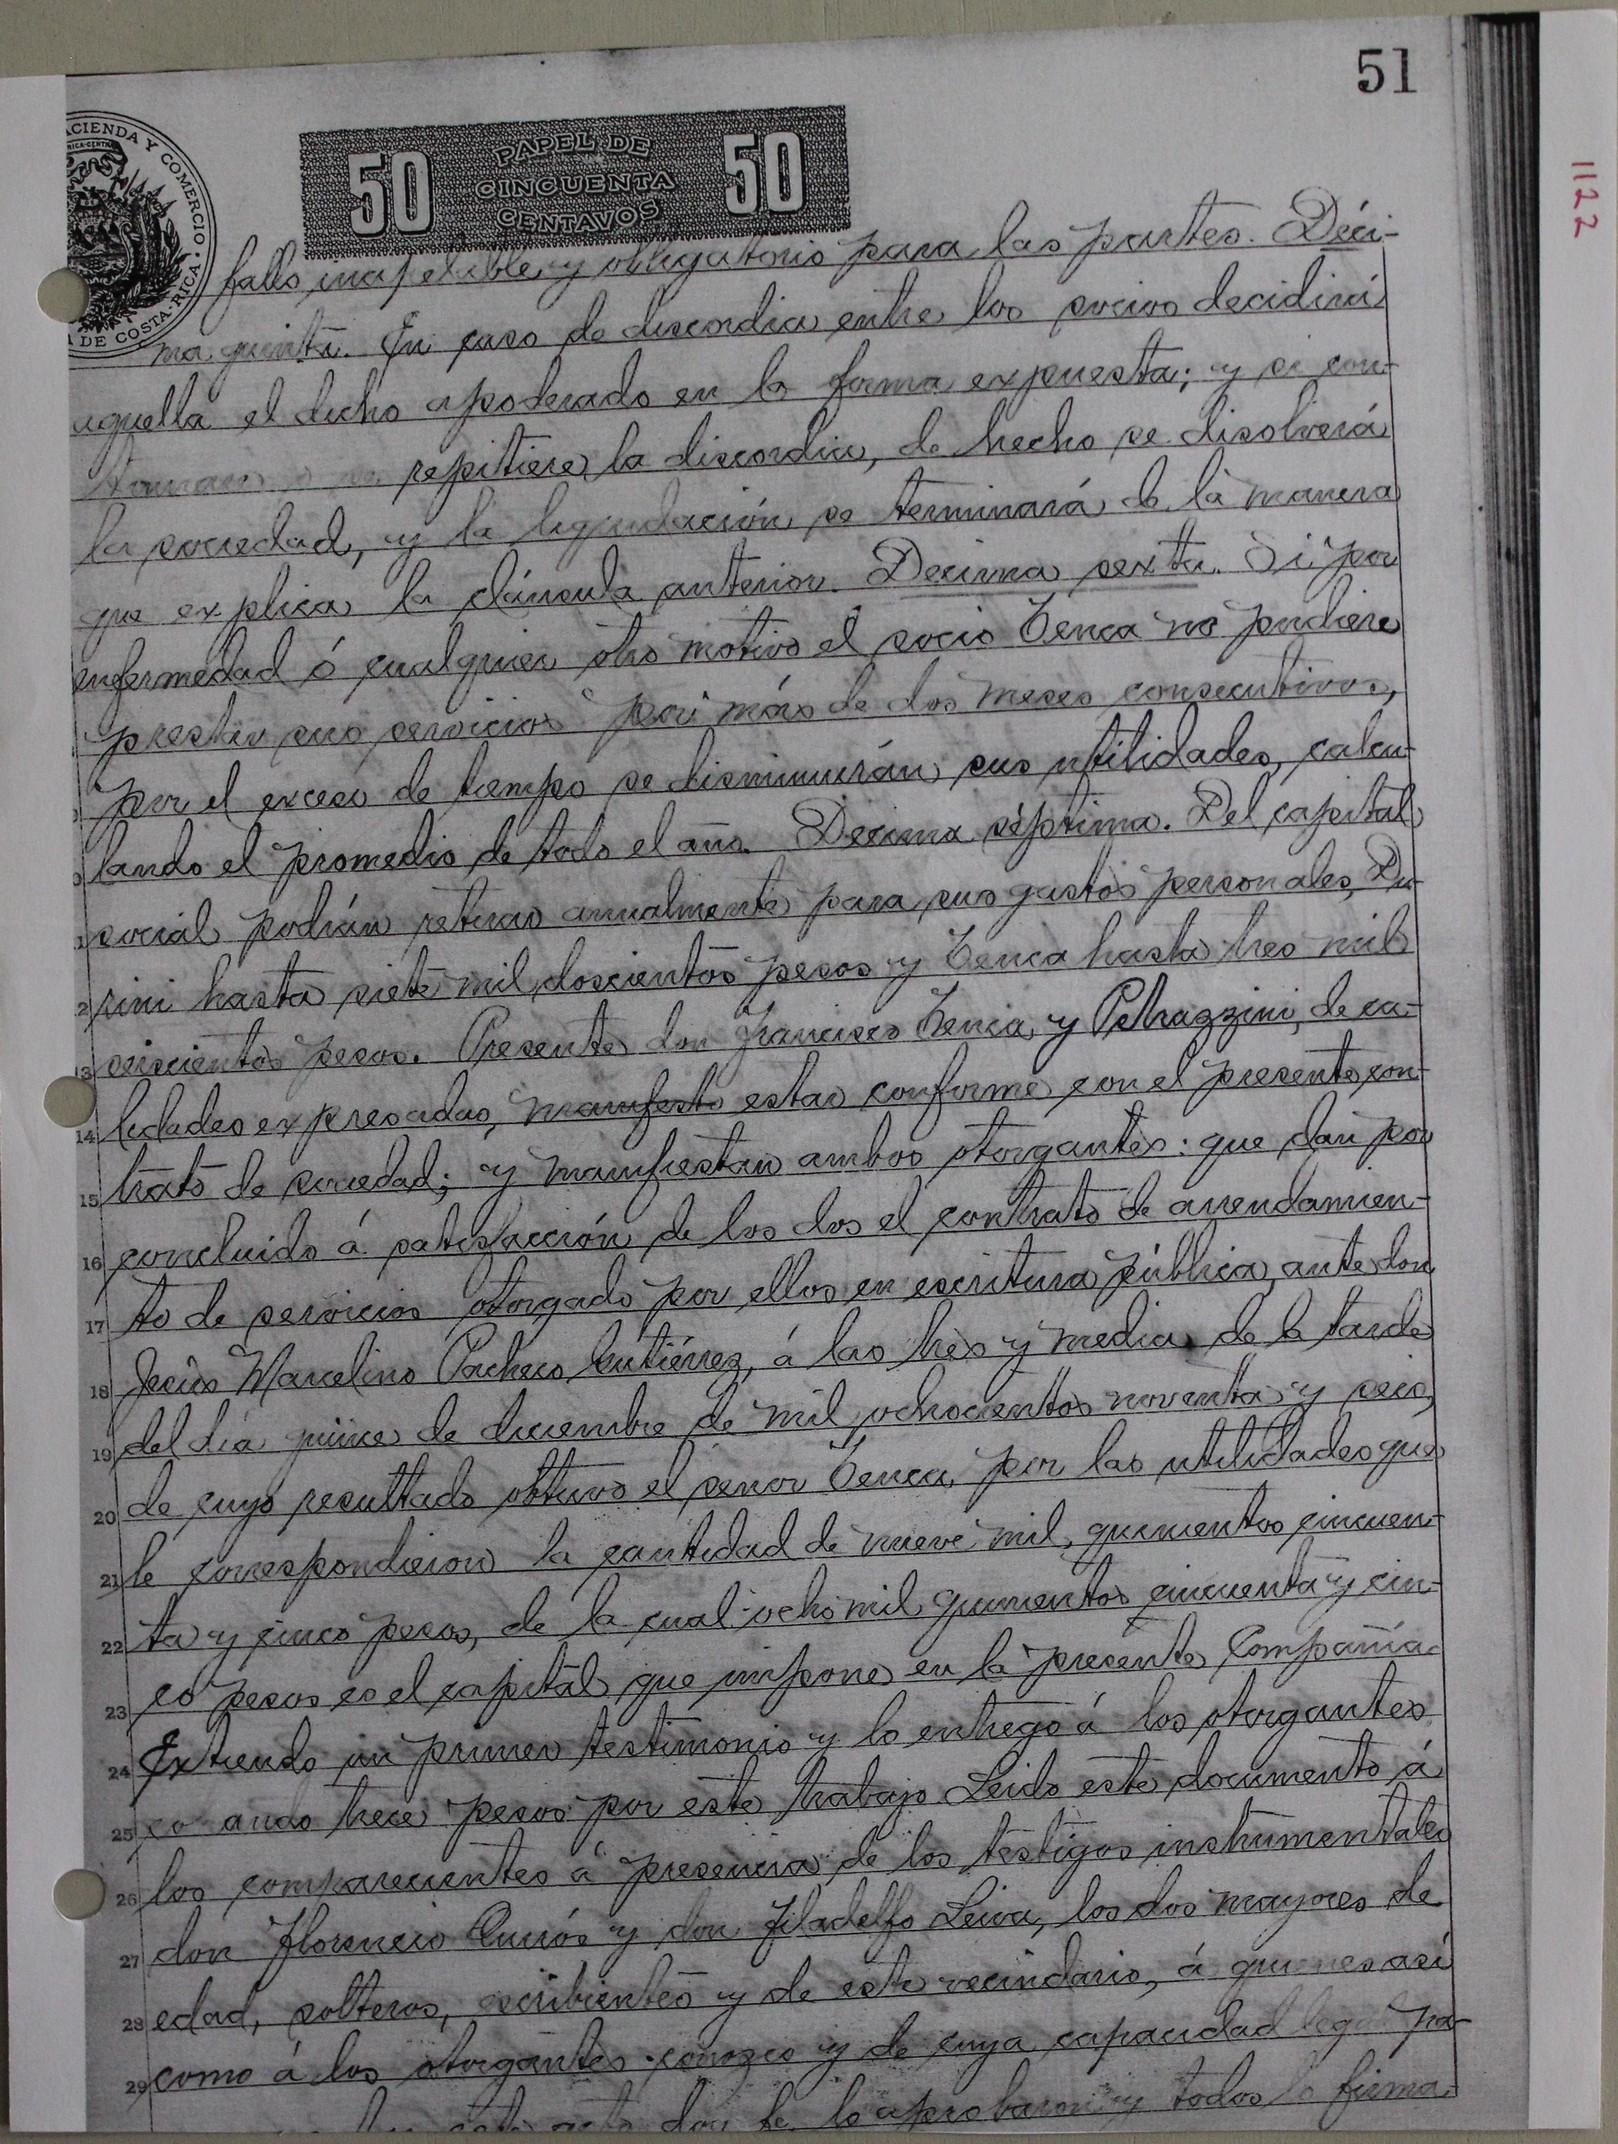 51
1122
HACIENDA Y COMERCIO
DE COSTA·RICA·
50 PAPEL DE CINCUENTA CENTAVOS 50
fallo inapelable y obligatorio para las partes. Déci-
ma quinta. En caso de discordia entre los socios decidirá
aquella el dicho apoderado en la forma expuesta; y si con-
repitiere la discordia, de hecho se disolverá
la sociedad, y la liquidación se terminará de la manera
que explica la cláusula anterior. Decima sexta. Si por
enfermedad ó cualquier otro motivo el socio Tenca no pudiere
prestar sus servicios por más de dos meses consecutivos,
por el exceso de tiempo se disminuirán sus utilidades, calcu-
lando el promedio de todo el año. Decima séptima. Del capital
social podrán retirar anualmente para sus gastos personales, Du-
2 rini hasta siete mil doscientos pesos y Tenca hasta tres mil
13 seiscientos pesos. Presente don Francisco Tenca y Petrazzini, de ca-
14 lidades expresadas, manifestó estar conforme con el presente con-
15 trato de sociedad; y manifiestan ambos otorgantes: que dan por
16 concluido á satisfacción de los dos el contrato de arrendamien-
17 to de servicios otorgado por ellos en escritura pública, ante don
18 Jesús Marcelino Pacheco Gutiérrez, á las tres y media de la tarde
19 del día quince de diciembre de mil ochocientos noventa y seis,
20 de cuyo resultado obtuvo el señor Tenca, por las utilidades que
21 le correspondieron la cantidad de nueve mil, quinientos cincuen-
22 ta y cinco pesos, de la cual ocho mil quinientos cincuenta y cin-
23 co pesos es el capital que impone en la presente Compañía.
24 Extiendo un primer testimonio y lo entrego á los otorgantes
25 trece pesos por este trabajo. Leido este documento á
26 los comparecientes á presencia de los testigos instrumentales
27 don Florencio Quirós y don Filadelfo Leiva, los dos mayores de
28 edad, solteros, escribientes y de este vecindario, á quienes así
29 como á los otorgantes conozco y de cuya capacidad legal pa-
este acto doy fe, lo aprobaron y todos lo firma-